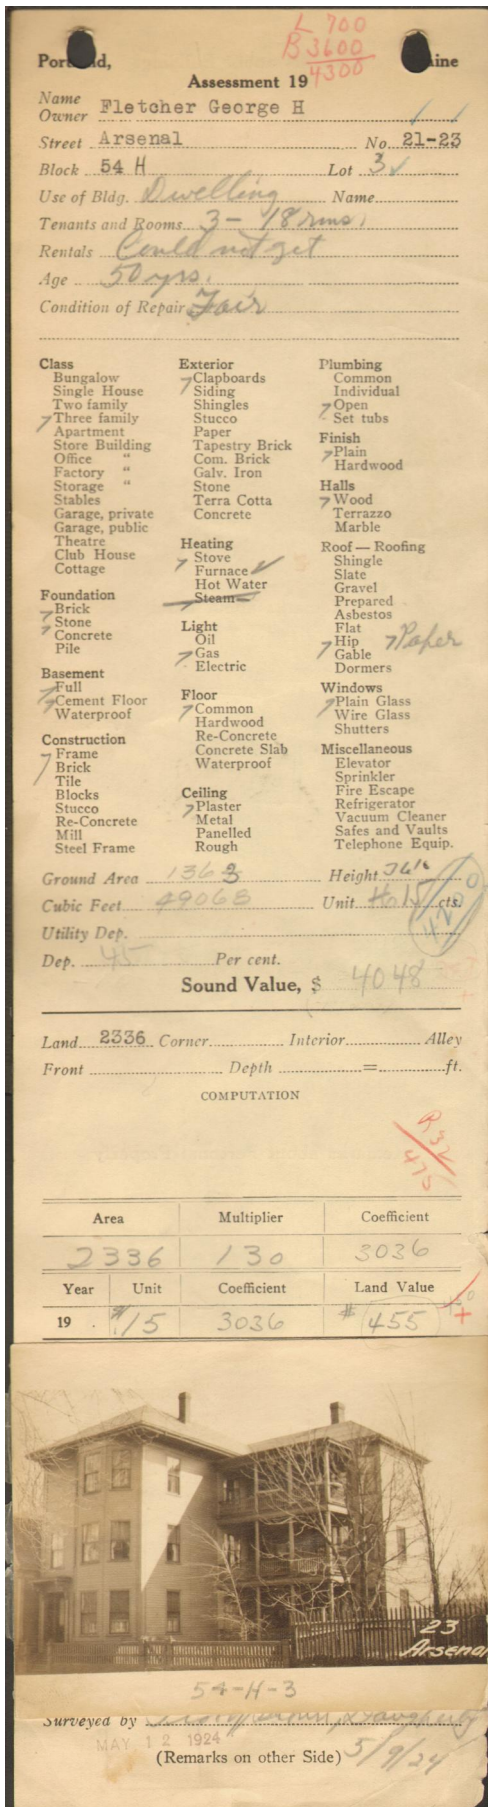 L 700
B 3600
4300
Portland, Maine
Assessment 19
Name
Owner Fletcher George H
Street Arsenal No. 21-23
Block 54 H Lot 3
Use of Bldg. Dwelling Name
Tenants and Rooms 3 - 18 rms.
Rentals Could not get
Age 50 yrs.
Condition of Repair Fair
Class
Bungalow
Single House
Two family
Three family
Apartment
Store Building
Office "
Factory "
Storage "
Stables
Garage, private
Garage, public
Theatre
Club House
Cottage
Foundation
Brick
Stone
Concrete
Pile
Basement
Full
Cement Floor
Waterproof
Construction
Frame
Brick
Tile
Blocks
Stucco
Re-Concrete
Mill
Steel Frame
Exterior
Clapboards
Siding
Shingles
Stucco
Paper
Tapestry Brick
Com. Brick
Galv. Iron
Stone
Terra Cotta
Concrete
Heating
Stove
Furnace
Hot Water
Steam
Light
Oil
Gas
Electric
Floor
Common
Hardwood
Re-Concrete
Concrete Slab
Waterproof
Ceiling
Plaster
Metal
Panelled
Rough
Plumbing
Common
Individual
Open
Set tubs
Finish
Plain
Hardwood
Halls
Wood
Terrazzo
Marble
Roof — Roofing
Shingle
Slate
Gravel
Prepared
Asbestos
Flat
Hip Paper
Gable
Dormers
Windows
Plain Glass
Wire Glass
Shutters
Miscellaneous
Elevator
Sprinkler
Fire Escape
Refrigerator
Vacuum Cleaner
Safes and Vaults
Telephone Equip.
Ground Area 1363 Height 36
Cubic Feet 49068 Unit 15 cts.
4200
Utility Dep.
Dep. 45 Per cent.
Sound Value, $ 4048
Land 2336 Corner Interior Alley
Front Depth = ft.
COMPUTATION
R32
475
Area Multiplier Coefficient
2336 130 3036
Year Unit Coefficient Land Value
19 . $15 3036 $455
23
Arsenal
54-H-3
Surveyed by
MAY 12 1924
(Remarks on other Side) 5/9/24